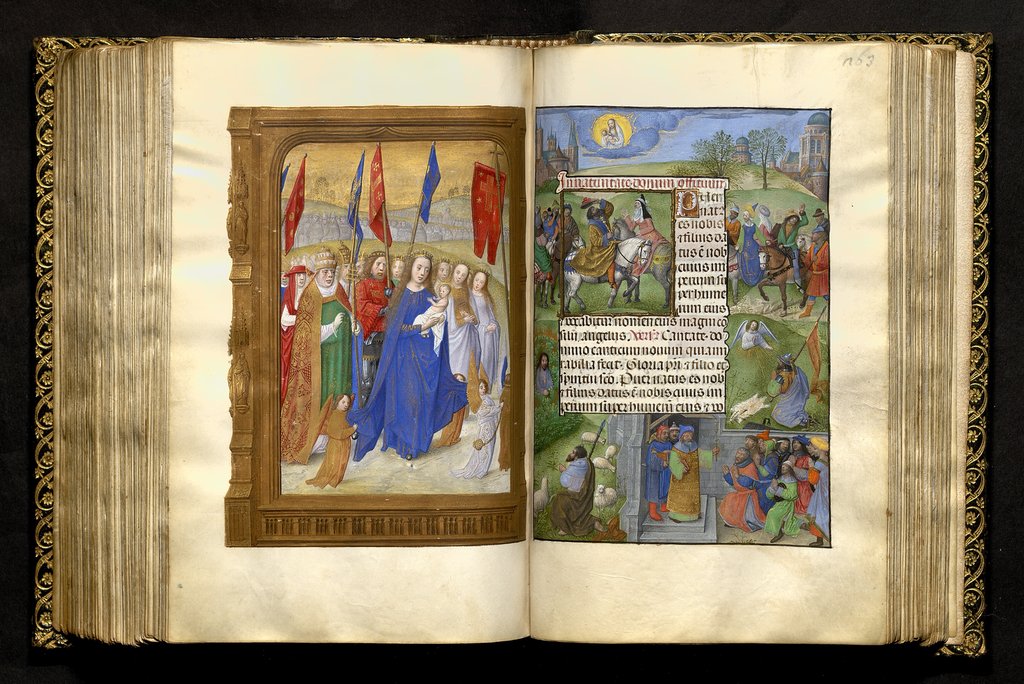 n63
In nativitate domini officium
P Uer
nat
es nobis
⁊ filius da
tus ē nob
cuius im
perium su
per hume
rum eius
⁊ vocabitur nomen eius magni co
silij angelus. Vers9 Cantate do
mino canticum novum quia mi
rabilia fecit. Gloria pr̄i ⁊ filio et
spiritui scō. Puer natus es nob
⁊ filius datus ē nobis cuius im
perium super humerū eius ⁊ vo